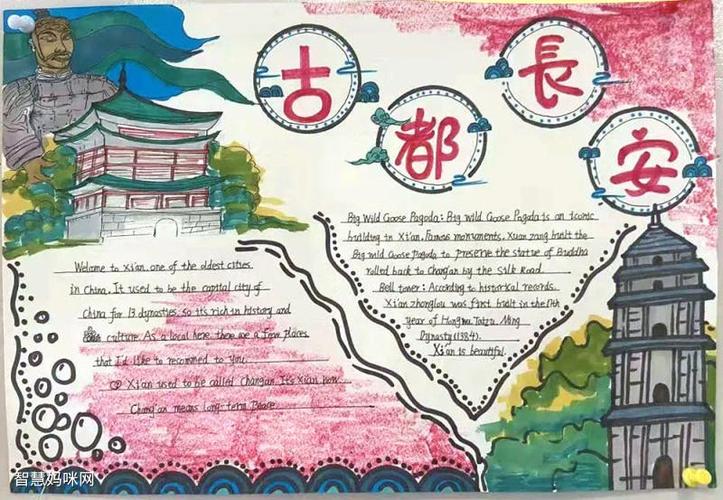 古都長安
Big Wild Goose Pagoda: Big wild Goose Pagoda is an iconic
building in Xi'an. Famous monuments. Xuan zang built the
Big wild Goose Pagoda to preserve the statue of Buddha
rolled back to Chang'an by the Silk Road
Bell tower: According to historical records.
Xi'an zhonglou was first built in the 17th
year of Hongwu Taizu. Ming
Dynasty (1384).
Xi'an is beautiful.
Welcome to Xi'an. one of the oldest cities
in China. It used to be the capital city of
China for 13 dynasties. so its rich in history and
culture. As a local here. there are a few places
that I'd like to recommed to you
Xi'an used to be called Changan. It's Xi'an now.
Chang'an means long-term Peace
智慧妈咪网